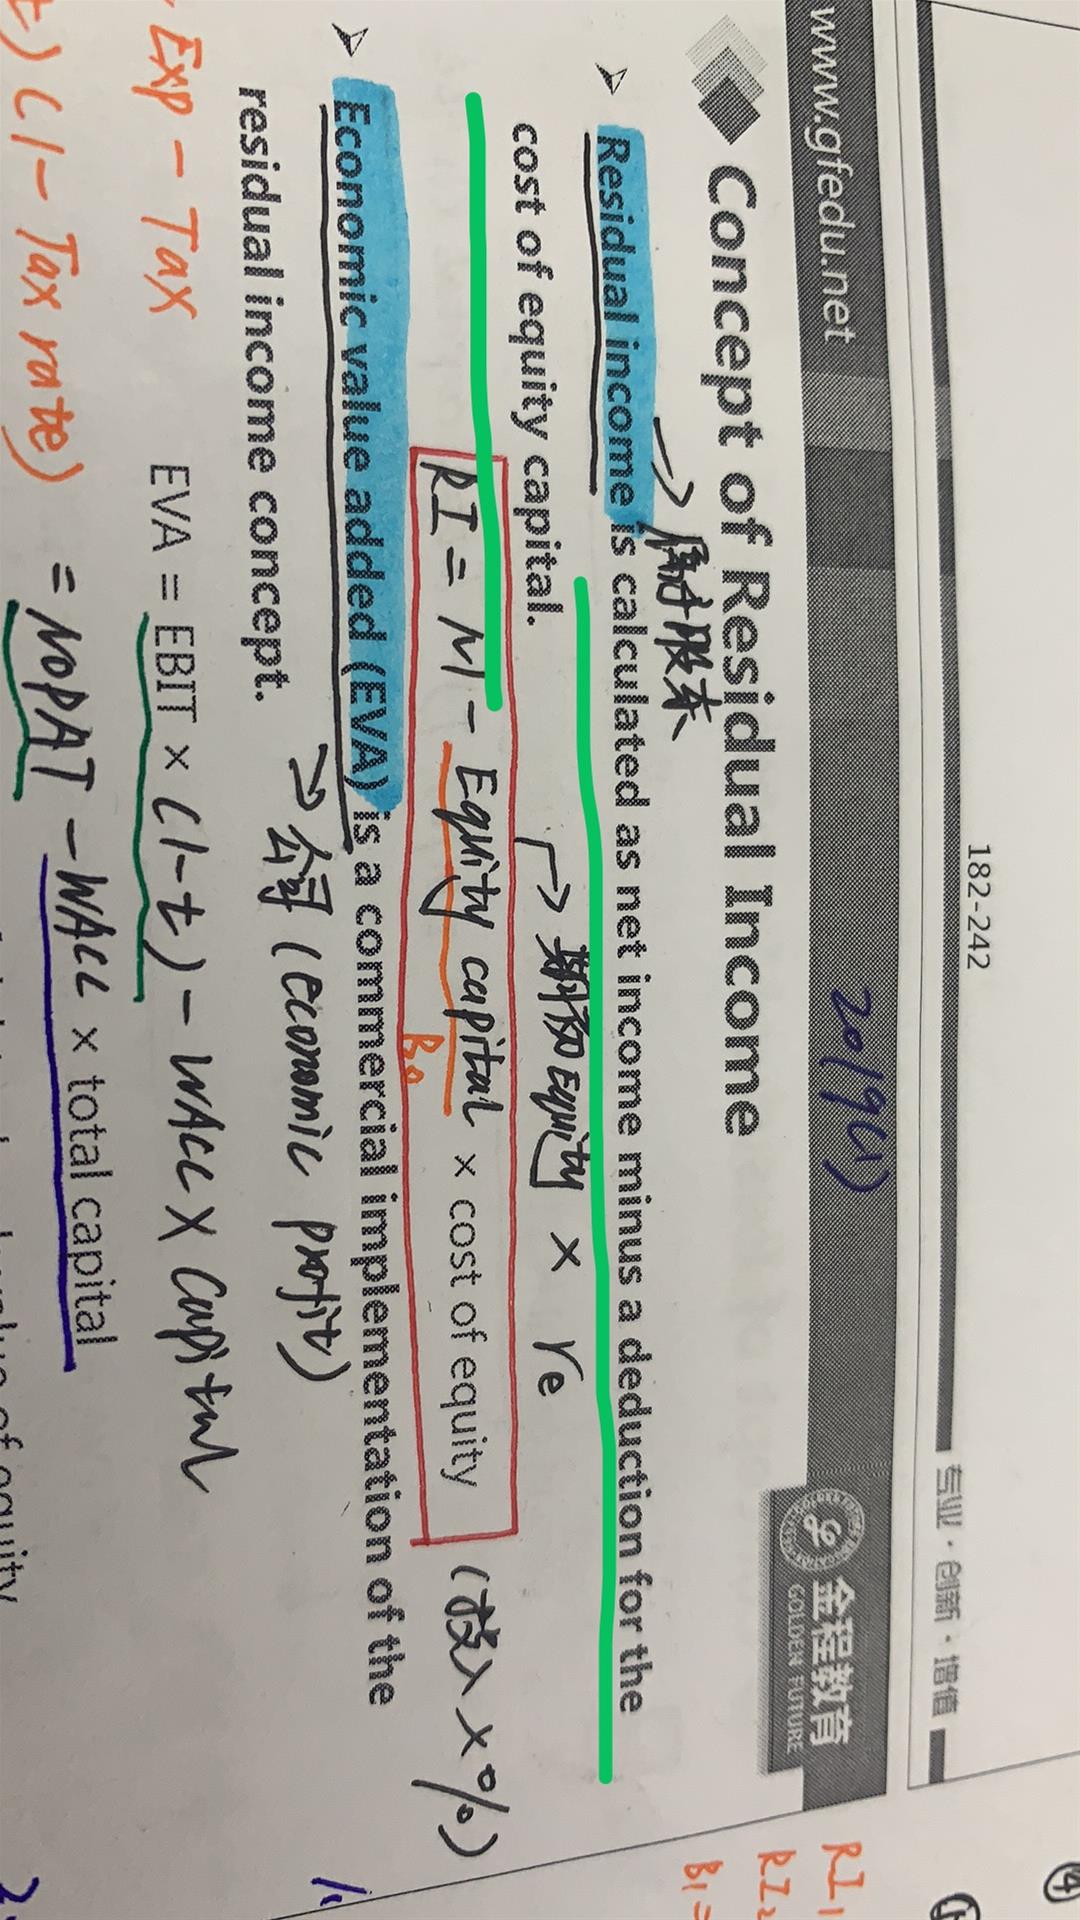 182-242
专业·创新·增值
www.gfedu.net
2019(1)
金程教育
GOLDEN FUTURE
Concept of Residual Income
→ 属于股东
➢ Residual income is calculated as net income minus a deduction for the
cost of equity capital.
→ 期初Equity × re
RI = NI - Equity capital × cost of equity (投入 × %)
B0
➢ Economic value added (EVA) is a commercial implementation of the
residual income concept.
→ 公司 (economic profit)
EVA = EBIT × (1-t) - WACC × Capital
= NOPAT - WACC × total capital
Exp - Tax
(1 - Tax rate)
④
RI1
RI2
B1 =